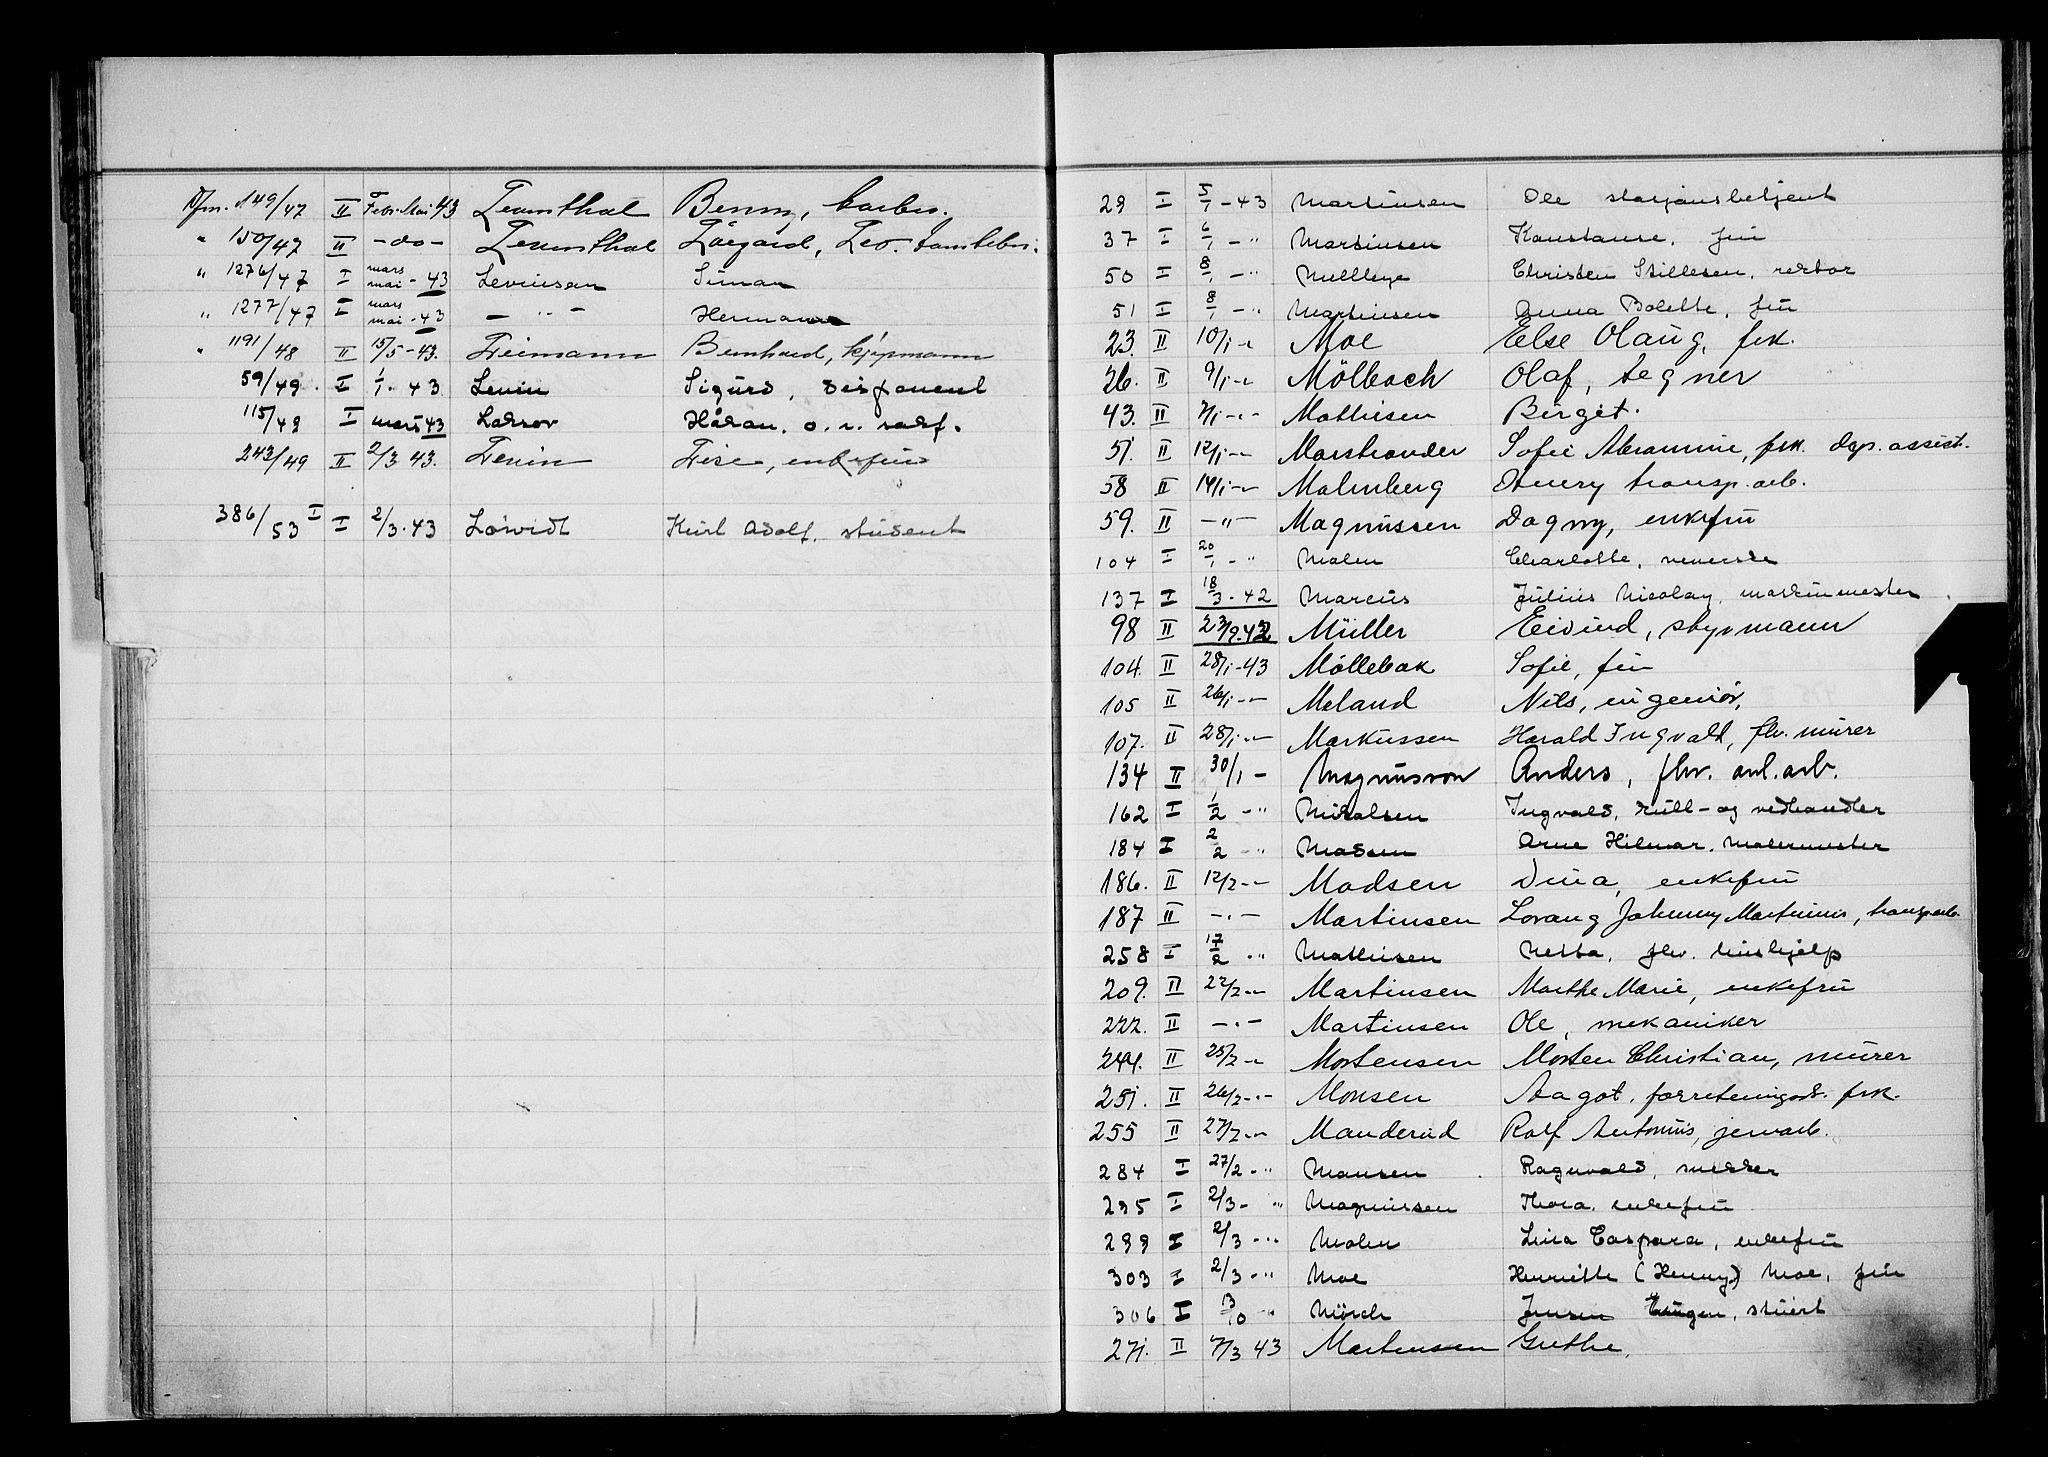 Dfm. 149/47 II Febr. Mai 43 Leventhal Benny, barber.
" 150/47 II -do- Leventhal
" 1276/47 I mars mai - 43 Levinsen Simon
" 1277/47 I mars mai - 43 - " - Hermann
" 1191/48 II 15/5-43. Leimann Bernhard, kjöpmann
59/49. I 1/1. 43 Levin Sigurd, disponent
115/49 I mars 43 Håkon. o. r. sakf.
243/49 II 2/3 43. Levin Lise, enkefru
386/53 I I 2/3. 43 Kurt Adolf, student
29 I 5/1 - 43 Martinsen Ole stasjonsbetjent
37 I 6/1 - " Martinsen Konstanse, fru
50 I 8/1 - " Mellbye Christen Stillesen, rektor
51 I 8/1 - " Martinsen Anna Bolette, fru
23. II 10/1 - " Moe Else Olaug, frk.
26. II 9/1 - " Mölbach Olaf, tegner
43. II 7/1 - " Mathisen Birgit.
51. II 12/1 - " Marstrander Sofie Abramine, frk. dep. assist.
58 II 14/1 - " Malmberg Henry transp. arb.
59. II - " - Magnussen Dagny, enkefru
104 I 20/1 - " Malm Charlotte, veverske
137 I 18/3 - 42 Marcus Julius Nicolay, maskinmester
98 II 23/9.42 Müller Eivind, styrmann
104. II 28/1-43 Möllebak Sofie, fru
105 II 26/1 - " Meland Nils, ingeniör,
107. II 28/1 - " Markussen Harald Ingvald, flv. murer
134 II 30/1 - Magnusson Anders, flv. anl. arb.
162 I 1/2 - " Mikalsen Ingvald, kull- og vedhandler
184 I 2/2 - " Madsen Arne Hilmar. malermester
186. II 12/2 - " Madsen Dina, enkefru
187 II - " - Martinsen Lorang Johnny Martinius, transp. arb.
258 I 17/2 - " Mathisen Netta, flv. hushjelp
209. II 22/2 - " Martinsen Marthe Marie, enkefru
222. II - " - Martinsen Ole, mekaniker
244. II 25/2 - " Mortensen Morten Christian, murer
251. II 26/2 - " Monsen Aagot, forretningsdr. frk.
255 II 27/2 - " Manderud Rolf Antonius, jernarb.
284 I 27/2 - " Monsen Ragnvald, snekker
295 I 2/3 - " Magnussen Thora, enkefru
299 I 2/3 - " Malm Lina Caspara, enkefru
303 I 2/3 - " Moe Henriette (Henny) Moe, fru
306 I 13/10 - " Mörch Jensen Eugen, stuert
271. II 7/3 43 Martinsen Grethe.